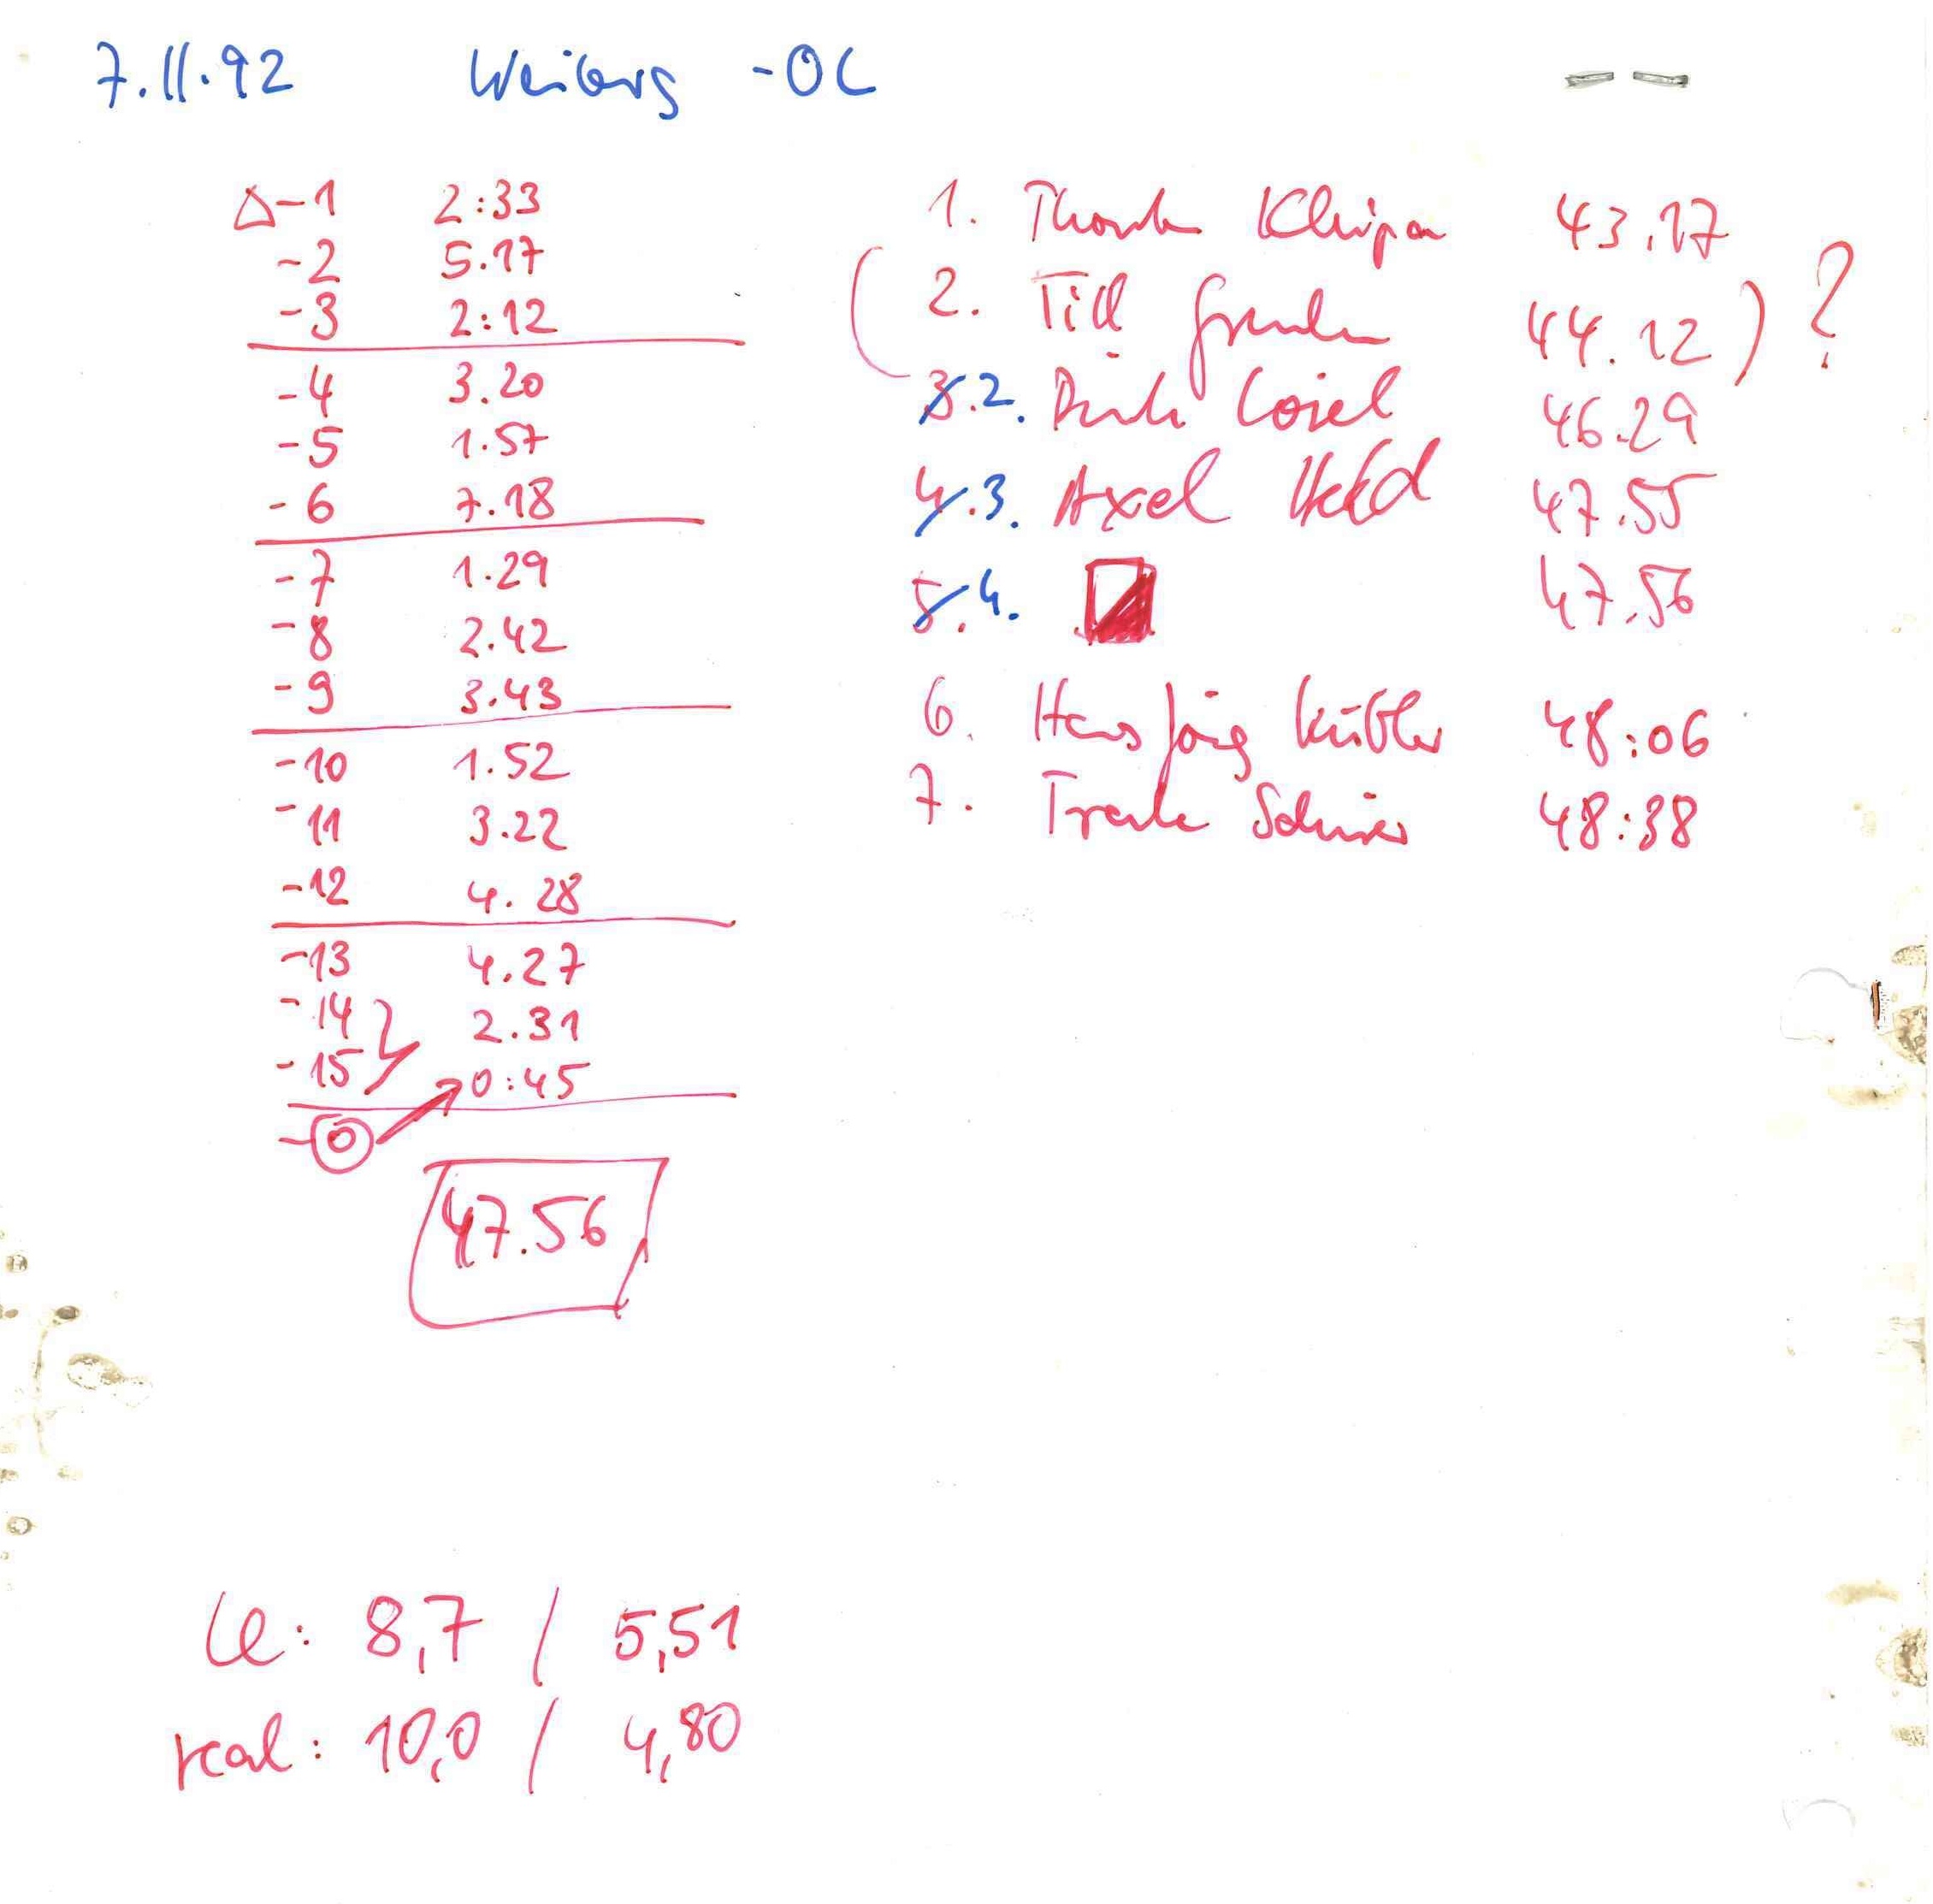 7.11.92 -OL
△-1 2:33
-2 5.17
-3 2:12
-4 3.20
-5 1.57
-6 7.18
-7 1.29
-8 2.42
-9 3.43
-10 1.52
-11 3.22
-12 4.28
-13 4.27
-14 2.31
-15 0:45
47.56
1. 43.17
(2. Till 44.12) ?
3.2. 46.29
4.3. Axel Held 47.55
5.4. 47.56
6. Hansjörg Kübler 48:06
7. Frank 48:38
8,7 / 5,51
real: 10,0 / 4,80